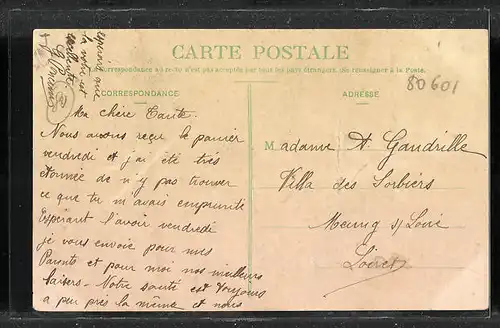 CARTE POSTALE
La Correspondance au recto n'est pas acceptée par tous les pays étrangers. (Se renseigner à la Poste.
CORRESPONDANCE
ADRESSE
80601
Ma chère Tante.
Nous avons reçu le panier
vendredi et j'ai été très
étonnée de n'y pas trouver
ce que tu m'avais emprunté
Espérant l'avoir vendredi
je vous envoie pour mes
Parents et pour moi nos meilleurs
baisers - Notre santé est toujours
a peu près la même et nous
Madame A. Gaudrille
Villa des Sorbiers
Meung s/ Loire
Loiret